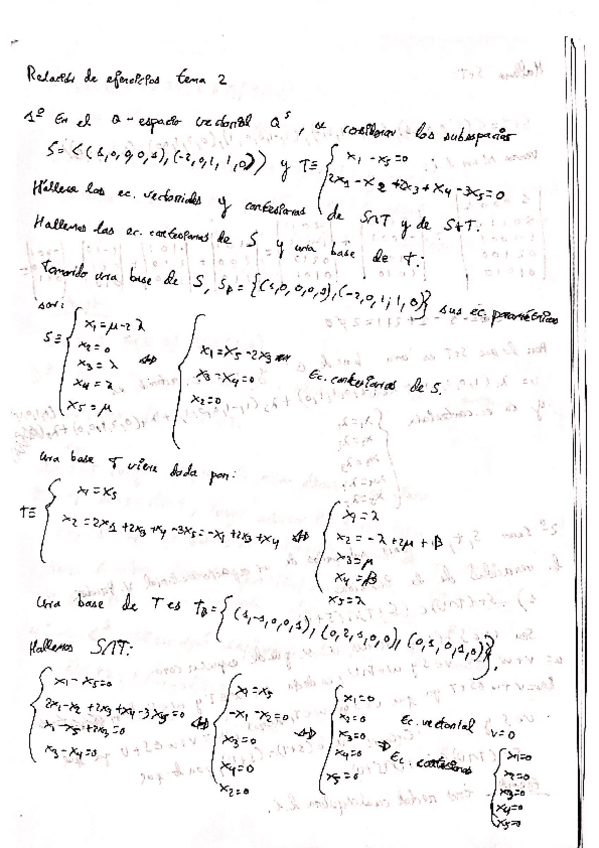 Relación de ejercicios tema 2
1º En el Q-espacio vectorial Q^5, se consideran los subespacios
S=<(1,0,0,0,1),(-2,0,1,1,0)> y T≡ { x1 - x5=0
2x1 - x2 + 2x3 + x4 - 3x5=0
Hállense las ec. vectoriales y cartesianas de S∩T y de S+T.
Hallemos las ec. cartesianas de S y una base de T:
Tomando una base de S, S_B = {(1,0,0,0,1),(-2,0,1,1,0)} sus ec. paramétricas
son:
S≡ { x1=μ-2λ
x2=0
x3=λ
x4=λ
x5=μ
⇔ { x1=x5-2x3
x3-x4=0
x2=0
Ec. cartesianas de S.
Una base T viene dada por:
T≡ { x1=x5
x2=2x1+2x3+x4-3x5=-x1+2x3+x4
⇔ { x1=λ
x2=-λ+2μ+β
x3=μ
x4=β
x5=λ
Una base de T es T_B={(1,-1,0,0,1),(0,2,1,0,0),(0,1,0,1,0)}.
Hallemos S∩T:
{ x1-x5=0
2x1-x2+2x3+x4-3x5=0
x1-x5+2x3=0
x3-x4=0
⇔ { x1=x5
-x1-x2=0
x3=0
x4=0
x2=0
⇔ { x1=0
x2=0
x3=0
x4=0
x5=0
⇒ Ec. vectorial v=0
Ec. cartesianas { x1=0
x2=0
x3=0
x4=0
x5=0